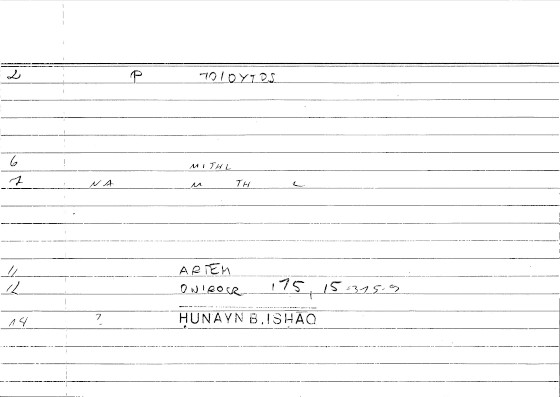 2 P TOIOYTOS
6 MITHL
7 NA M TH L
11 ARTEM
12 ONIROCR 175, 15
14 ? ḤUNAYN B. ISḤAQ